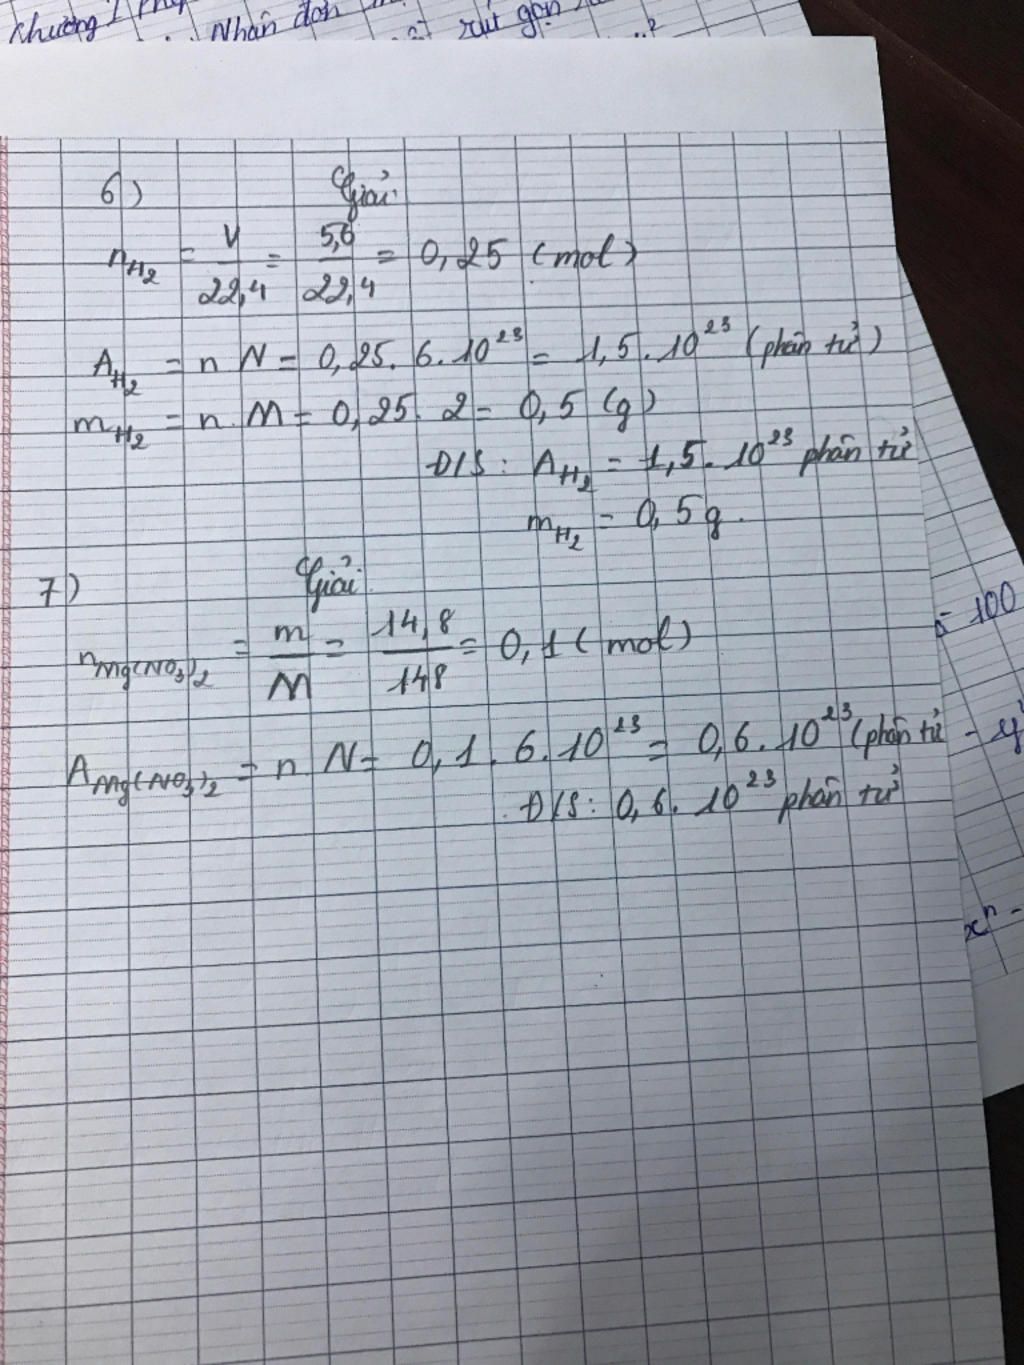 Chương I
Nhân đơn rút gọn
6) Giải
n_H₂ = V/22,4 = 5,6/22,4 = 0,25 (mol)
A_H₂ = n N = 0,25. 6.10²³ = 1,5.10²³ (phân tử)
m_H₂ = n. M = 0,25. 2 = 0,5 (g)
Đ/S : A_H₂ = 1,5. 10²³ phân tử
m_H₂ = 0,5g.
7) Giải
n_Mg(NO₃)₂ = m/M = 14,8/148 = 0,1 (mol)
A_Mg(NO₃)₂ = n. N = 0,1. 6.10²³ = 0,6.10²³ (phân tử
Đ/S: 0,6. 10²³ phân tử
= 100
xⁿ -